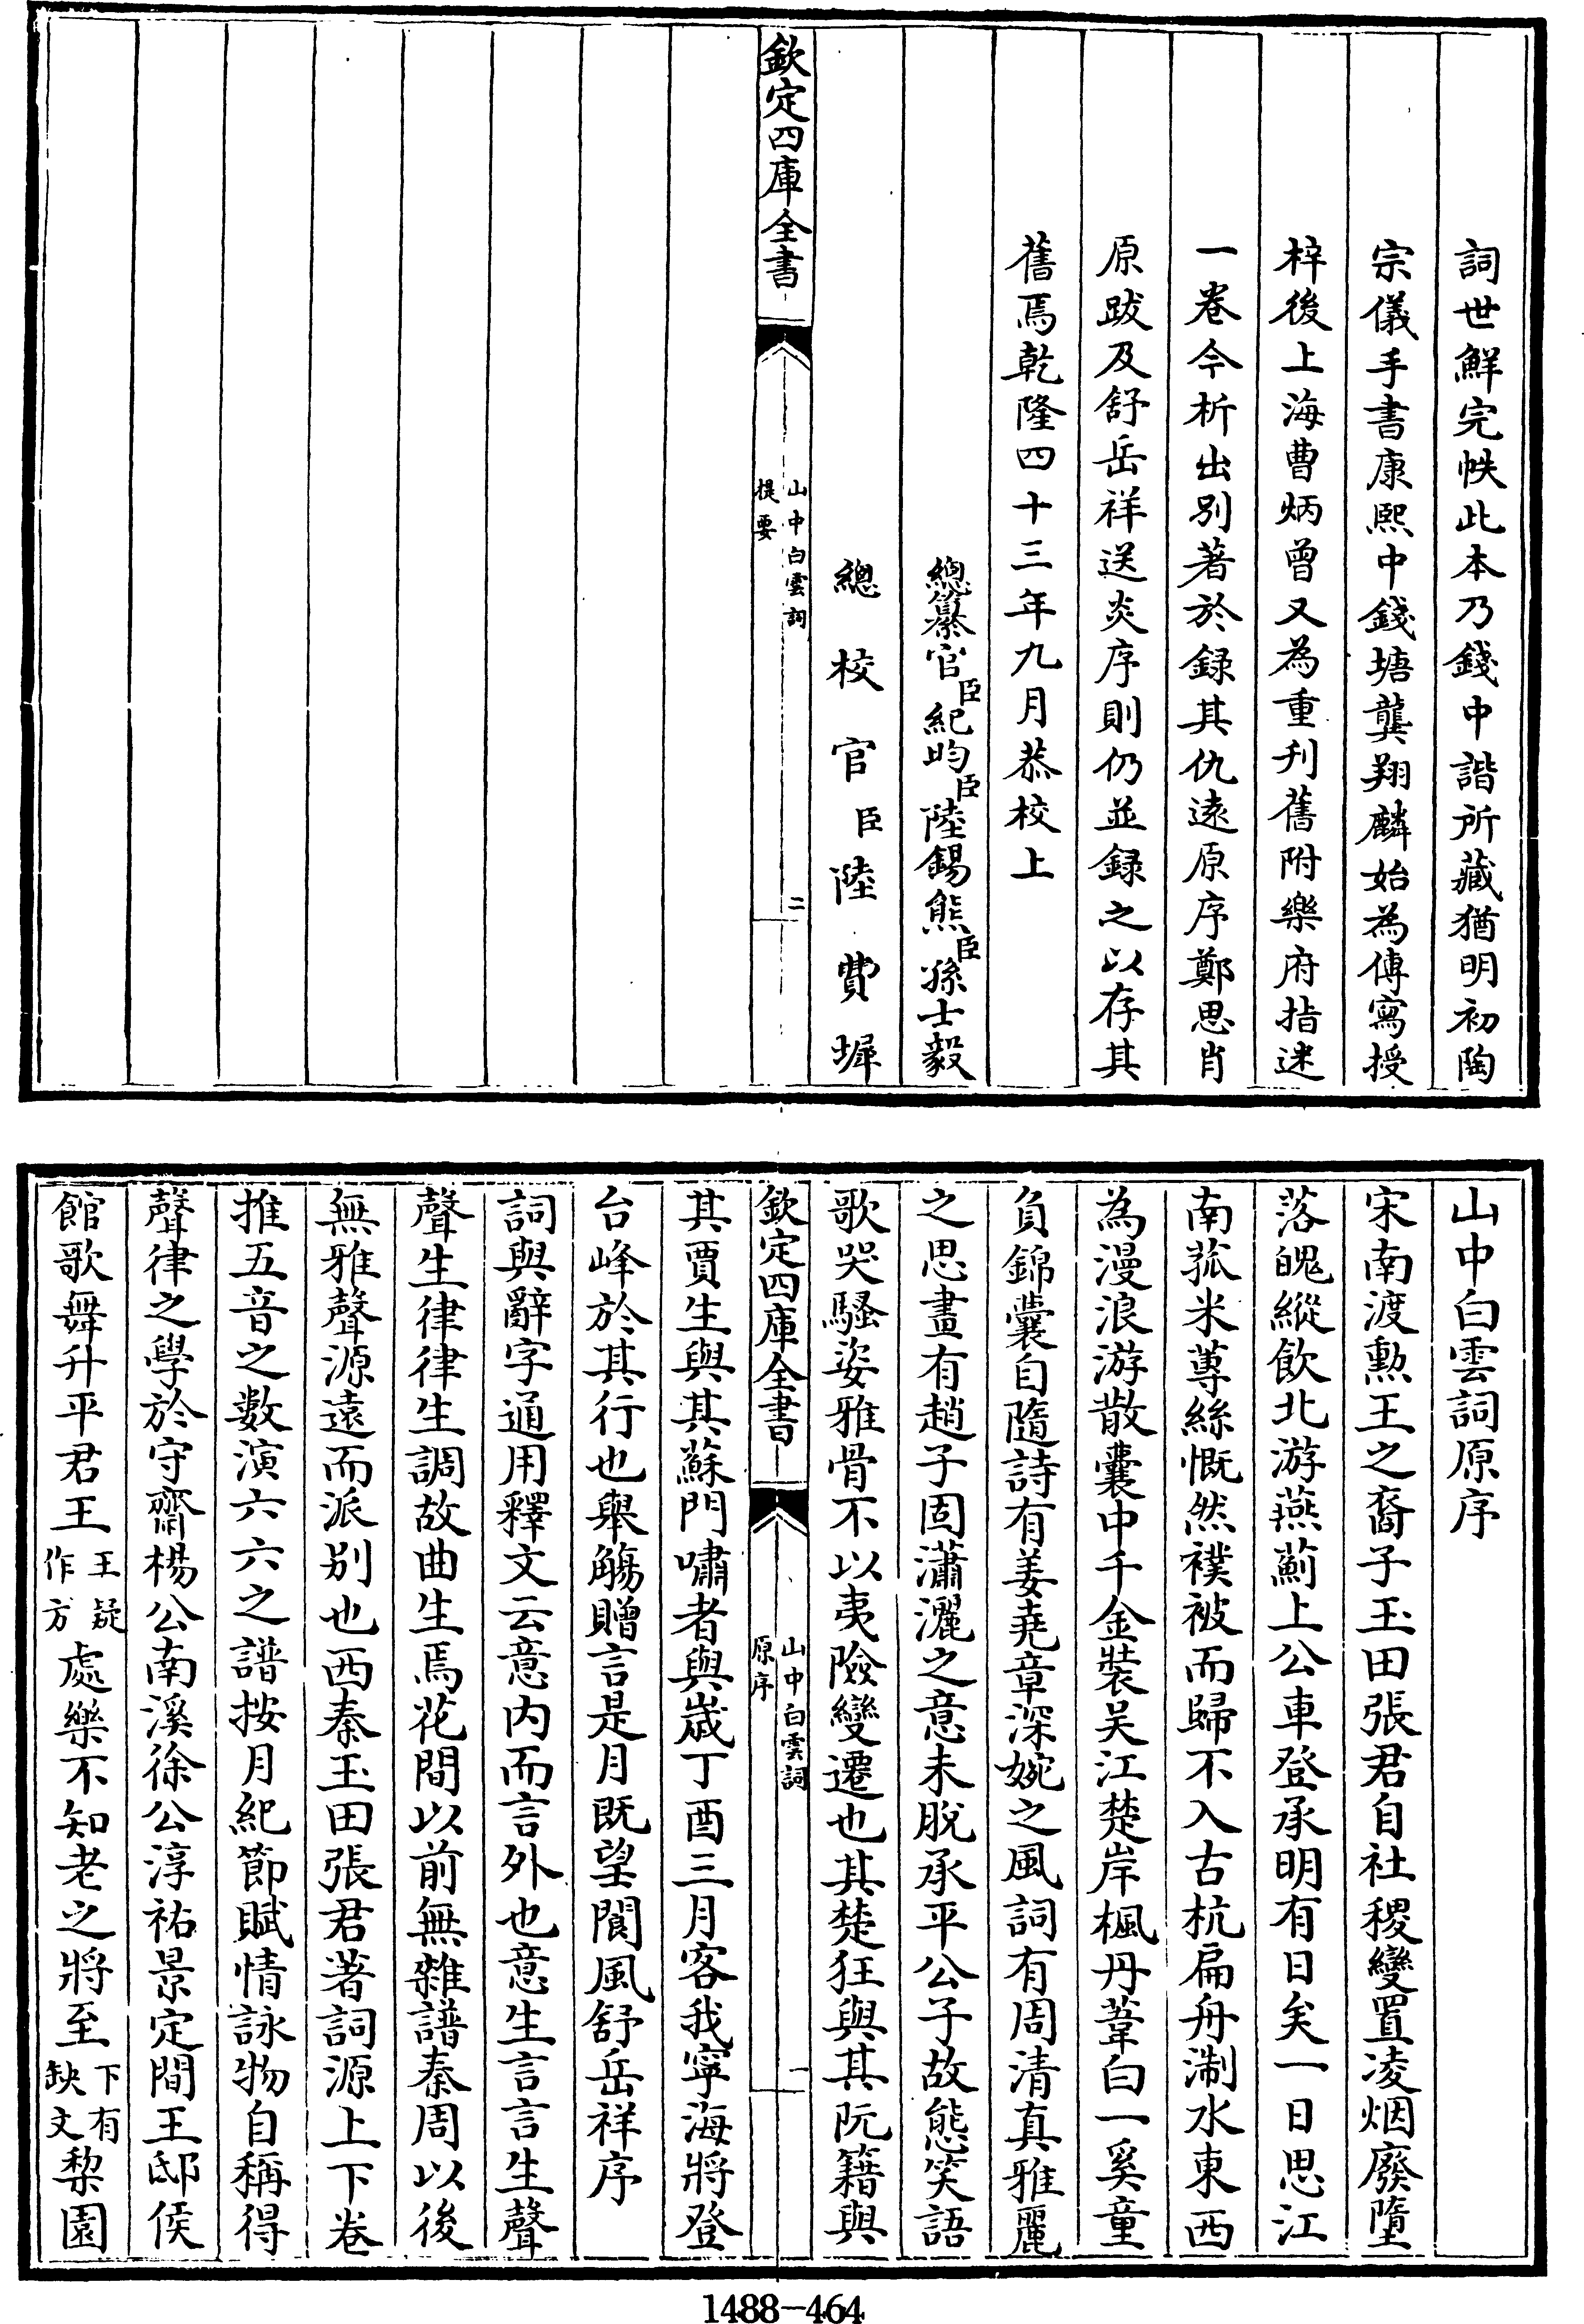 詞世鮮完帙此本乃錢中諧所藏猶明初陶
宗儀手書康熙中錢塘龔翔麟始為傳寫授
梓後上海曹炳曾又為重刋舊附樂府指迷
一卷今析出别著於録其仇逺原序鄭思肖
原跋及舒岳祥送炎序則仍並録之以存其
舊焉乾隆四十三年九月恭校上
總纂官臣紀昀臣陸錫熊臣孫士毅
總校官臣陸費墀
欽定四庫全書
山中白雲詞
提要
二
山中白雲詞原序
宋南渡勲王之裔子玉田張君自社稷變置凌烟廢墮
落魄縱飲北游燕薊上公車登承明有日矣一日思江
南菰米蓴絲慨然襆被而歸不入古杭扁舟淛水東西
為漫浪游散囊中千金裝吴江楚岸楓丹葦白一奚童
負錦囊自隨詩有姜堯章深婉之風詞有周清真雅麗
之思畫有趙子固瀟灑之意未脫承平公子故態笑語
歌哭騷姿雅骨不以夷險變遷也其楚狂與其阮籍與
欽定四庫全書
山中白雲詞
原序
一
其賈生與其蘇門嘯者與歲丁酉三月客我寧海將登
台峰於其行也舉觴贈言是月既望閬風舒岳祥序
詞與辭字通用釋文云意内而言外也意生言言生聲
聲生律律生調故曲生焉花間以前無雜譜秦周以後
無雅聲源遠而派别也西秦玉田張君著詞源上下卷
推五音之數演六六之譜按月紀節賦情詠物自稱得
聲律之學於守齋楊公南溪徐公淳祐景定間王邸侯
館歌舞升平君王王疑作方處樂不知老之將至下有缺文棃園
1488-464